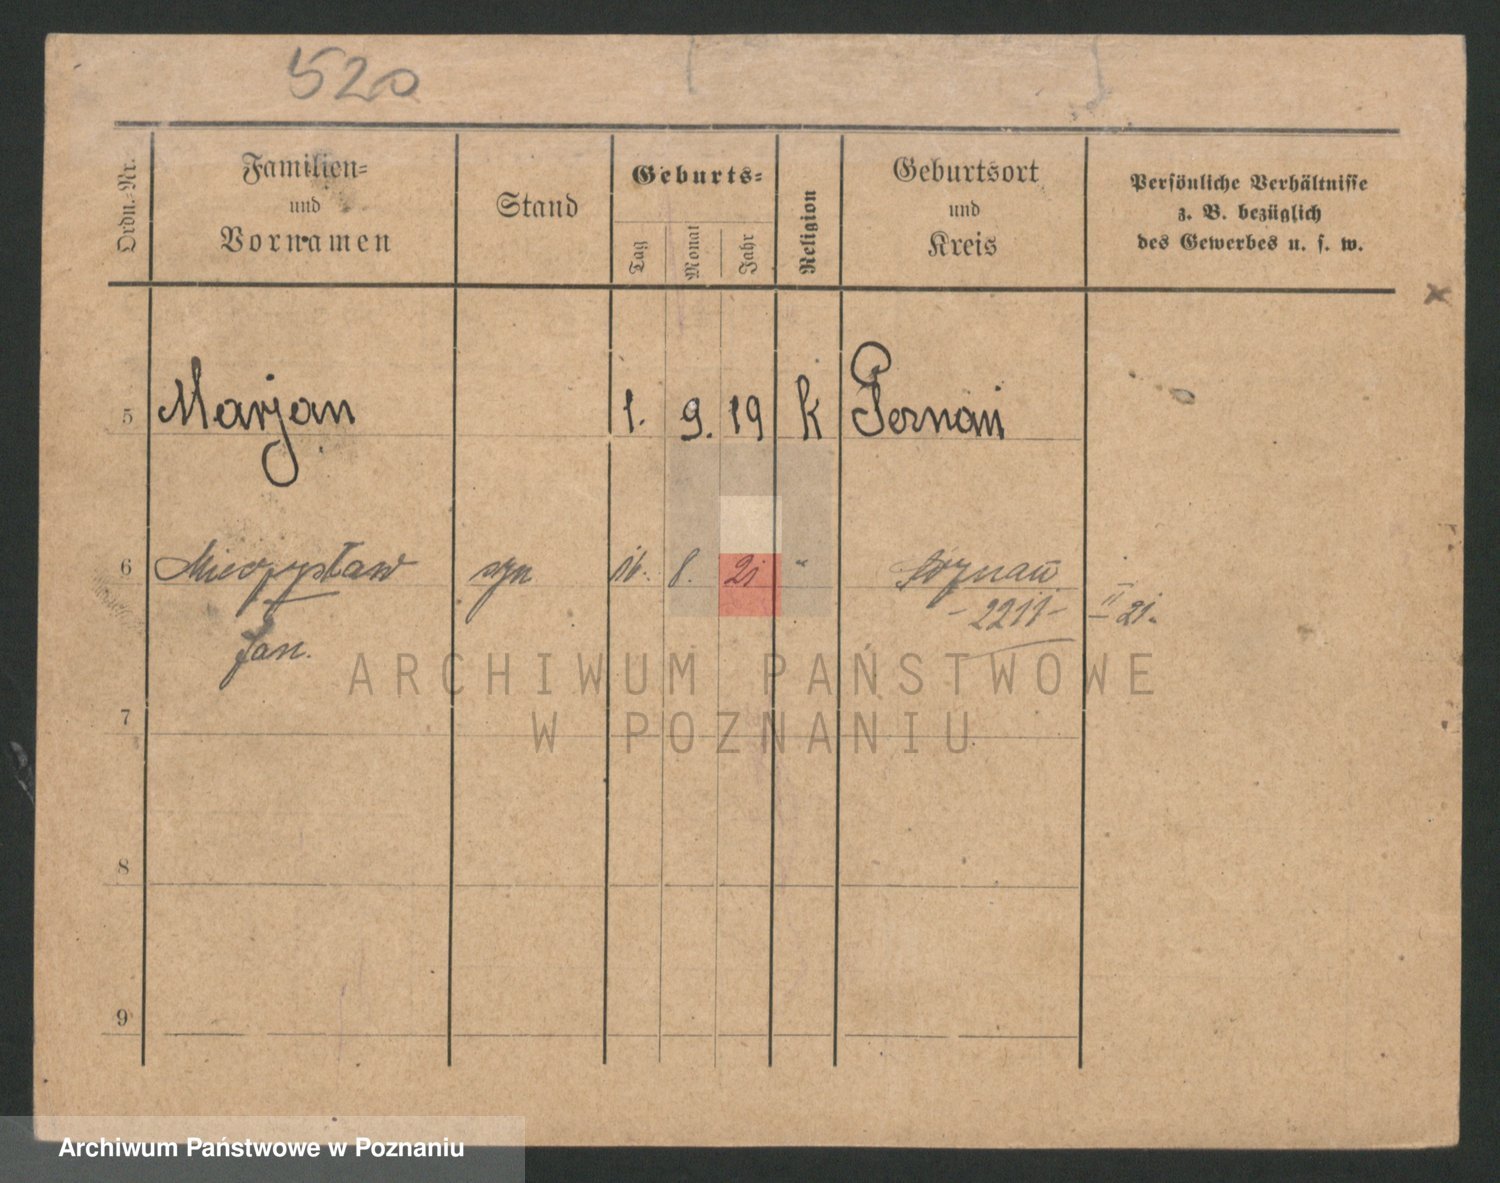 520
Ordn.-Nr.
Familien-
und
Vornamen
Stand
Geburts-
Tag
Monat
Jahr
Religion
Geburtsort
und
Kreis
Persönliche Verhältnisse
z. B. bezüglich
des Gewerbes u. s. w.
5 Marjan 1. 9. 19 k Poznań
6 Mieczysław syn 16. 8. 21 " Poznań
Jan. - 2211 - II 21.
7
8
9
ARCHIWUM PAŃSTWOWE
W POZNANIU
Archiwum Państwowe w Poznaniu